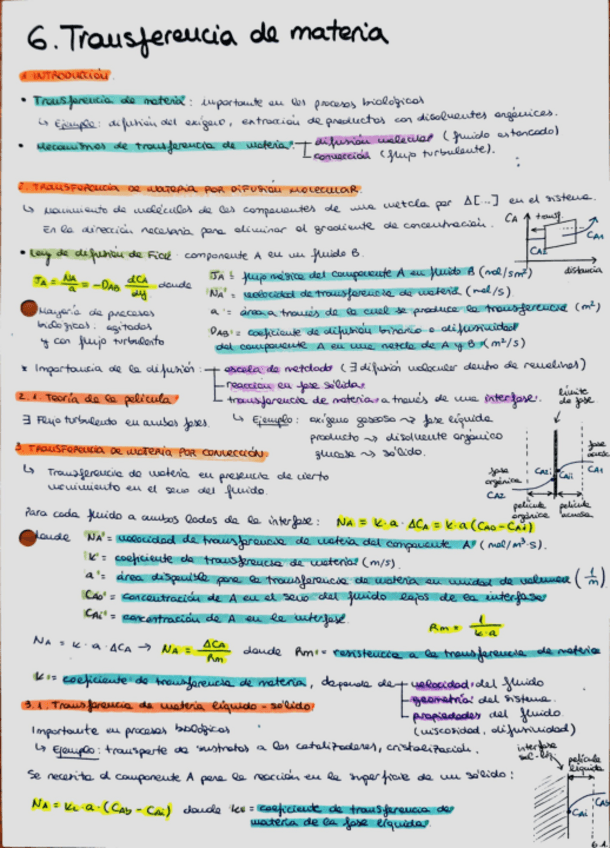 6. Transferencia de materia
1. INTRODUCCIÓN.
• Transferencia de materia: importante en los procesos biológicos
↳ Ejemplo: difusión del oxígeno, extracción de productos con disolventes orgánicos.
• Mecanismos de transferencia de materia: difusión molecular (fluido estancado)
convección (flujo turbulento).
2. TRANSFERENCIA DE MATERIA POR DIFUSIÓN MOLECULAR.
↳ Movimiento de moléculas de los componentes de una mezcla por Δ[...] en el sistema.
En la dirección necesaria para eliminar el gradiente de concentración.
CA transf. CA1
CA2
distancia
• Ley de difusión de Fick: componente A en un fluido B.
JA = NA/a = -DAB dCA/dy donde
JA = flujo másico del componente A en fluido B (mol/sm²)
NA = velocidad de transferencia de materia (mol/s)
a = área a través de la cual se produce la transferencia (m²)
DAB = coeficiente de difusión binario o difusividad
del componente A en una mezcla de A y B (m²/s)
Mayoría de procesos
biológicos: agitados
y con flujo turbulento
* Importancia de la difusión: escala de mezclado (∃ difusión molecular dentro de remolinos)
reacción en fase sólida
transferencia de materia a través de una interfase.
2.1. Teoría de la película
∃ Flujo turbulento en ambas fases.
↳ Ejemplo: oxígeno gaseoso → fase líquida
producto → disolvente orgánico
glucosa → sólido.
límite
de fase
fase
orgánica
CA2
CA2i
CA1i
CA1
fase
acuosa
película
orgánica
película
acuosa
3. TRANSFERENCIA DE MATERIA POR CONVECCIÓN
↳ Transferencia de materia en presencia de cierto
movimiento en el seno del fluido.
Para cada fluido a ambos lados de la interfase: NA = k·a·ΔCA = k·a(CAo-CAi)
donde NA = velocidad de transferencia de materia del componente A (mol/m³·s).
k = coeficiente de transferencia de materia (m/s).
a = área disponible para la transferencia de materia en unidad de volumen (1/m)
CAo = concentración de A en el seno del fluido lejos de la interfase
CAi = concentración de A en la interfase.
Rm = 1/k·a
NA = k·a·ΔCA → NA = ΔCA/Rm donde Rm = resistencia a la transferencia de materia
k = coeficiente de transferencia de materia, depende de velocidad del fluido
geometría del sistema.
propiedades del fluido.
(viscosidad, difusividad)
3.1. Transferencia de materia líquido-sólido
Importante en procesos biológicos
↳ Ejemplo: transporte de sustratos a los catalizadores, cristalización.
Se necesita el componente A para la reacción en la superficie de un sólido:
NA = kL·a·(CAo - CAi) donde kL = coeficiente de transferencia de
materia de la fase líquida.
interfase
sol-líq
película
líquida
CAo
CAi